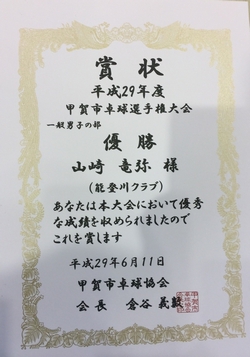 賞状
平成29年度
甲賀市卓球選手権大会
一般男子の部
優勝
山崎 竜弥 様
(能登川クラブ)
あなたは本大会において優秀
な成績を収められましたので
これを賞します
平成29年6月11日
甲賀市卓球協会
会長 倉谷 義